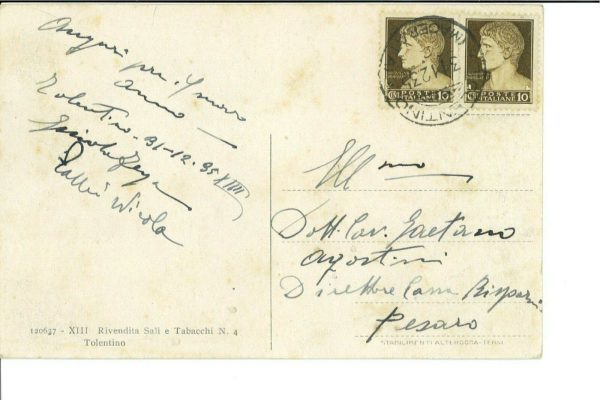 Auguri per il nuovo
anno
Tolentino 31-12-35 XIIII
Nicola
120637 - XIII Rivendita Sali e Tabacchi N. 4
Tolentino
POSTE
ITALIANE
10
POSTE
ITALIANE
10
Ill mo
Dott. Cav. Gaetano
Agostini
Direttore Cassa Risparmio
Pesaro
STABILIMENTI ALTEROCCA-TERNI